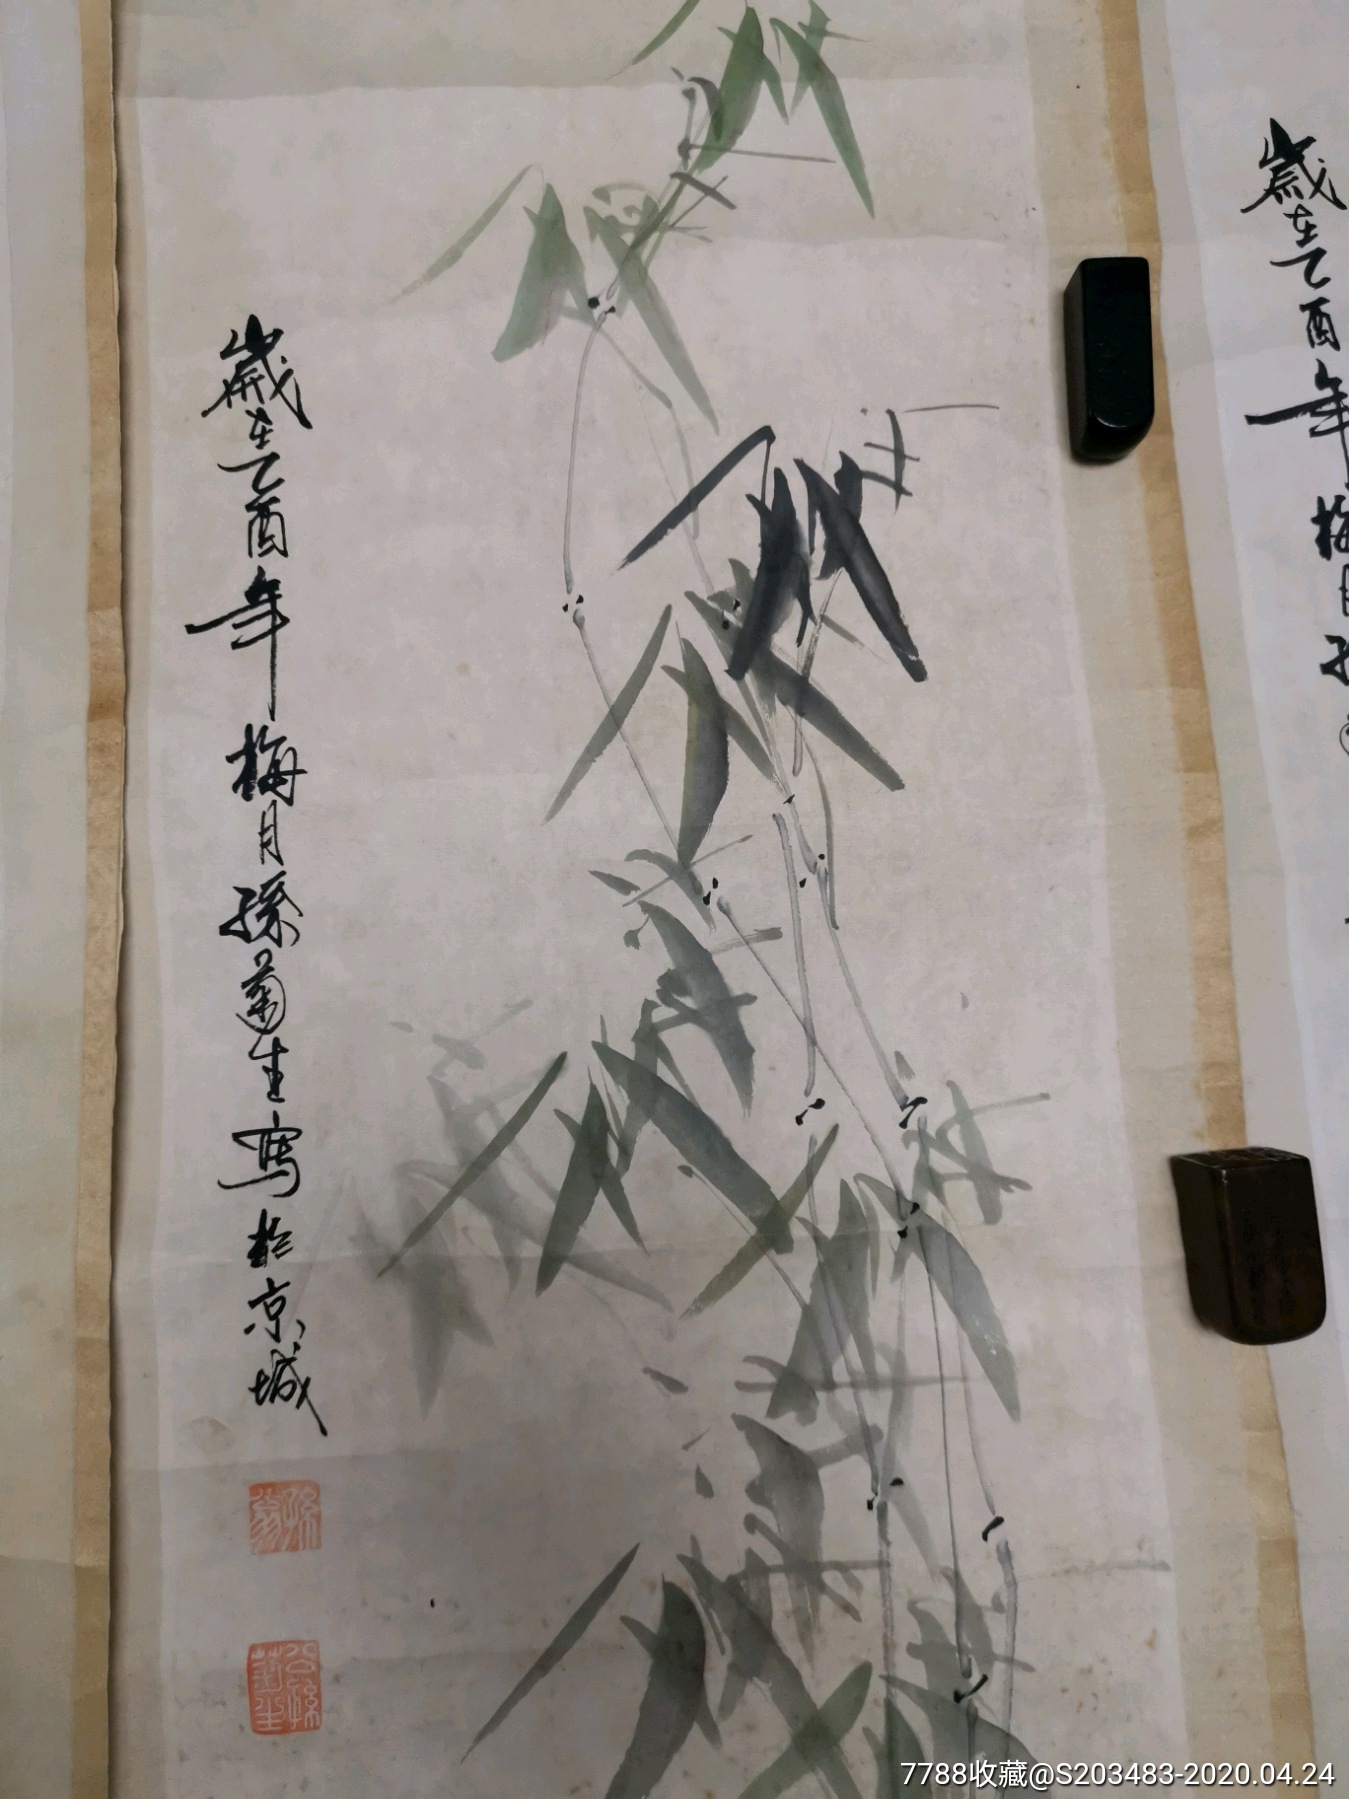 歲在乙酉年梅月孫菊生寫於京城
孫菊
公孫菊生
歲在乙酉年梅月孫
7788收藏@S203483-2020.04.24